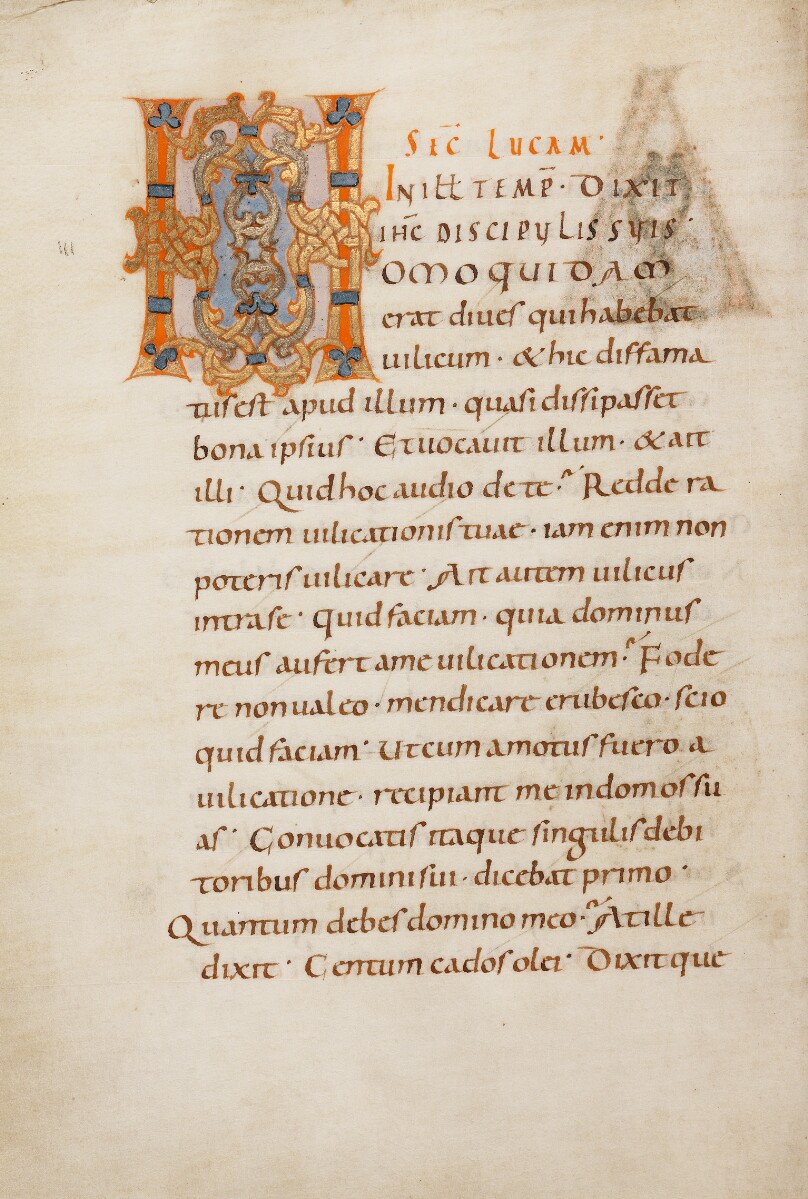 SEC̅ LUCAM·
IN ILL̅ TEMP̅· DIXIT
IHC̅ DISCIPULIS SUIS·
HOMO QUIDAM
erat diues qui habebat
uilicum· & hic diffama
tus est apud illum· quasi dissipasset
bona ipsius· Et uocauit illum· & ait
illi· Quid hoc audio de te? Redde ra
tionem uilicationis tuae· iam enim non
poteris uilicare· Ait autem uilicus
intra se· Quid faciam· quia dominus
meus aufert a me uilicationem? Fode
re non ualeo· mendicare erubesco· scio
quid faciam· Ut cum amotus fuero a
uilicatione· recipiant me in domos su
as· Conuocatis itaque singulis debi
toribus domini sui· dicebat primo·
Quantum debes domino meo? At ille
dixit· Centum cados olei· Dixitque